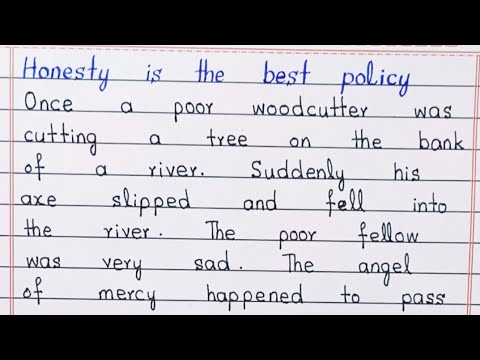 Honesty is the best policy
Once a poor woodcutter was
cutting a tree on the bank
of a river. Suddenly his
axe slipped and fell into
the river. The poor fellow
was very sad. The angel
of mercy happened to pass